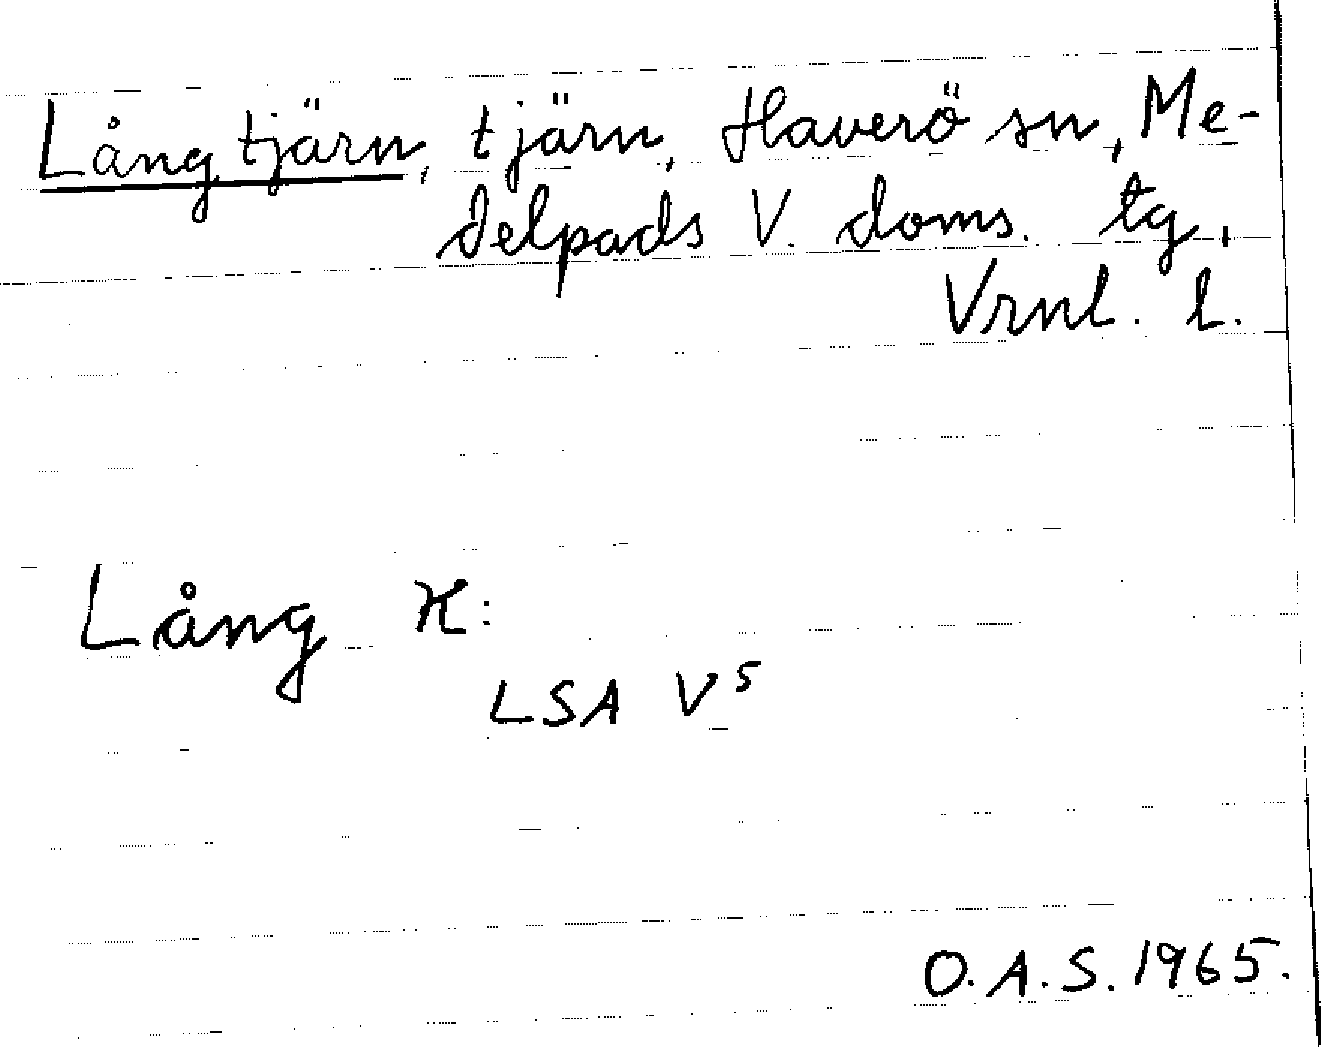 Långtjärn, tjärn, Haverö sn, Me-
delpads V. doms. tg,
Vrnl. l.
Lång K:
LSA V⁵
O.A.S. 1965.